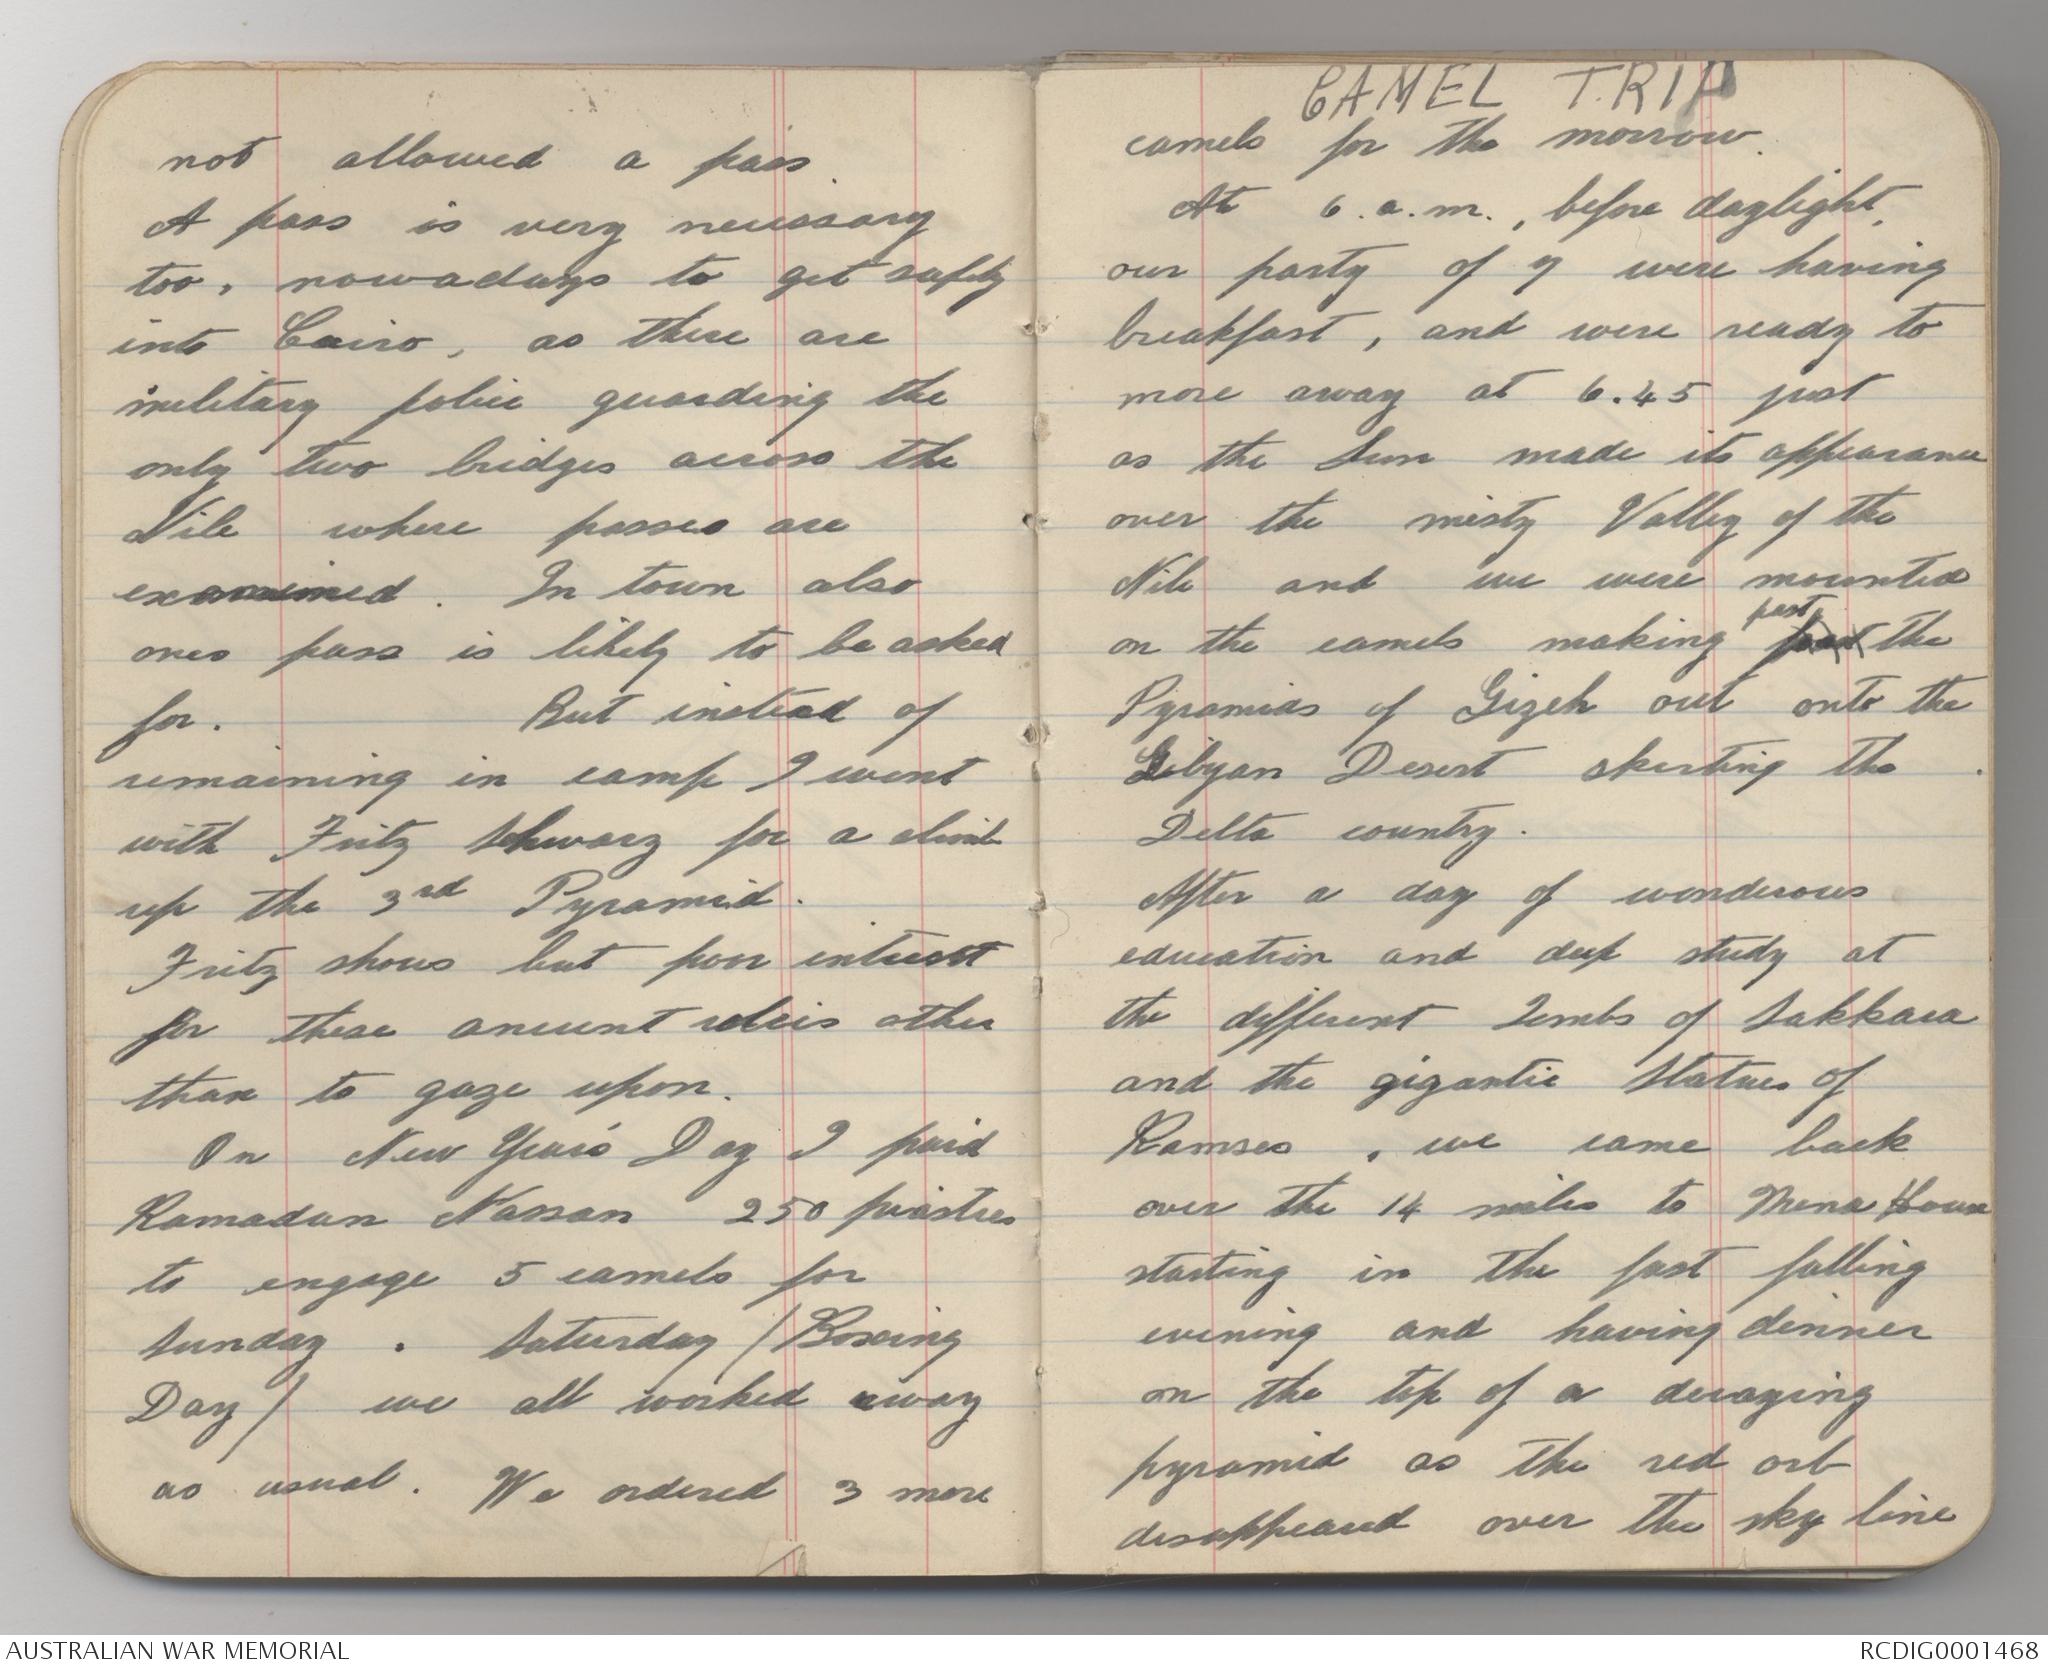 not allowed a pass.
A pass is very necessary
too, nowadays to get safely
into Cairo, as there are
military police guarding the
only two bridges across the
Nile where passes are
examined. In town also
ones pass is likely to be asked
for. But instead of
remaining in camp I went
with Fritz Schwarz for a climb
up the 3rd Pyramid.
Fritz shows but poor interest
for these ancient relics other
than to gaze upon.
On New Year's Day I paid
Ramadan Nassan 250 piastres
to engage 5 camels for
Sunday. Saturday (Boxing
Day) we all worked away
as usual. We ordered 3 more
CAMEL TRIP
camels for the morrow.
At 6.a.m., before daylight,
our party of 7 were having
breakfast, and were ready to
more away at 6.45 just
as the Sun made its appearance
over the misty Valley of the
Nile and we were mounted
on the camels making past the
Pyramids of Gizeh out onto the
Libyan Desert skirting the
Delta country.
After a day of wonderous
education and deep study at
the different Tombs of Sakkara
and the gigantic Statues of
Ramses, we came back
over the 14 miles to Mena House
starting in the fast falling
evening and having dinner
on the top of a decaying
pyramid as the red orb
disappeared over the sky line
AUSTRALIAN WAR MEMORIAL
RCDIG0001468